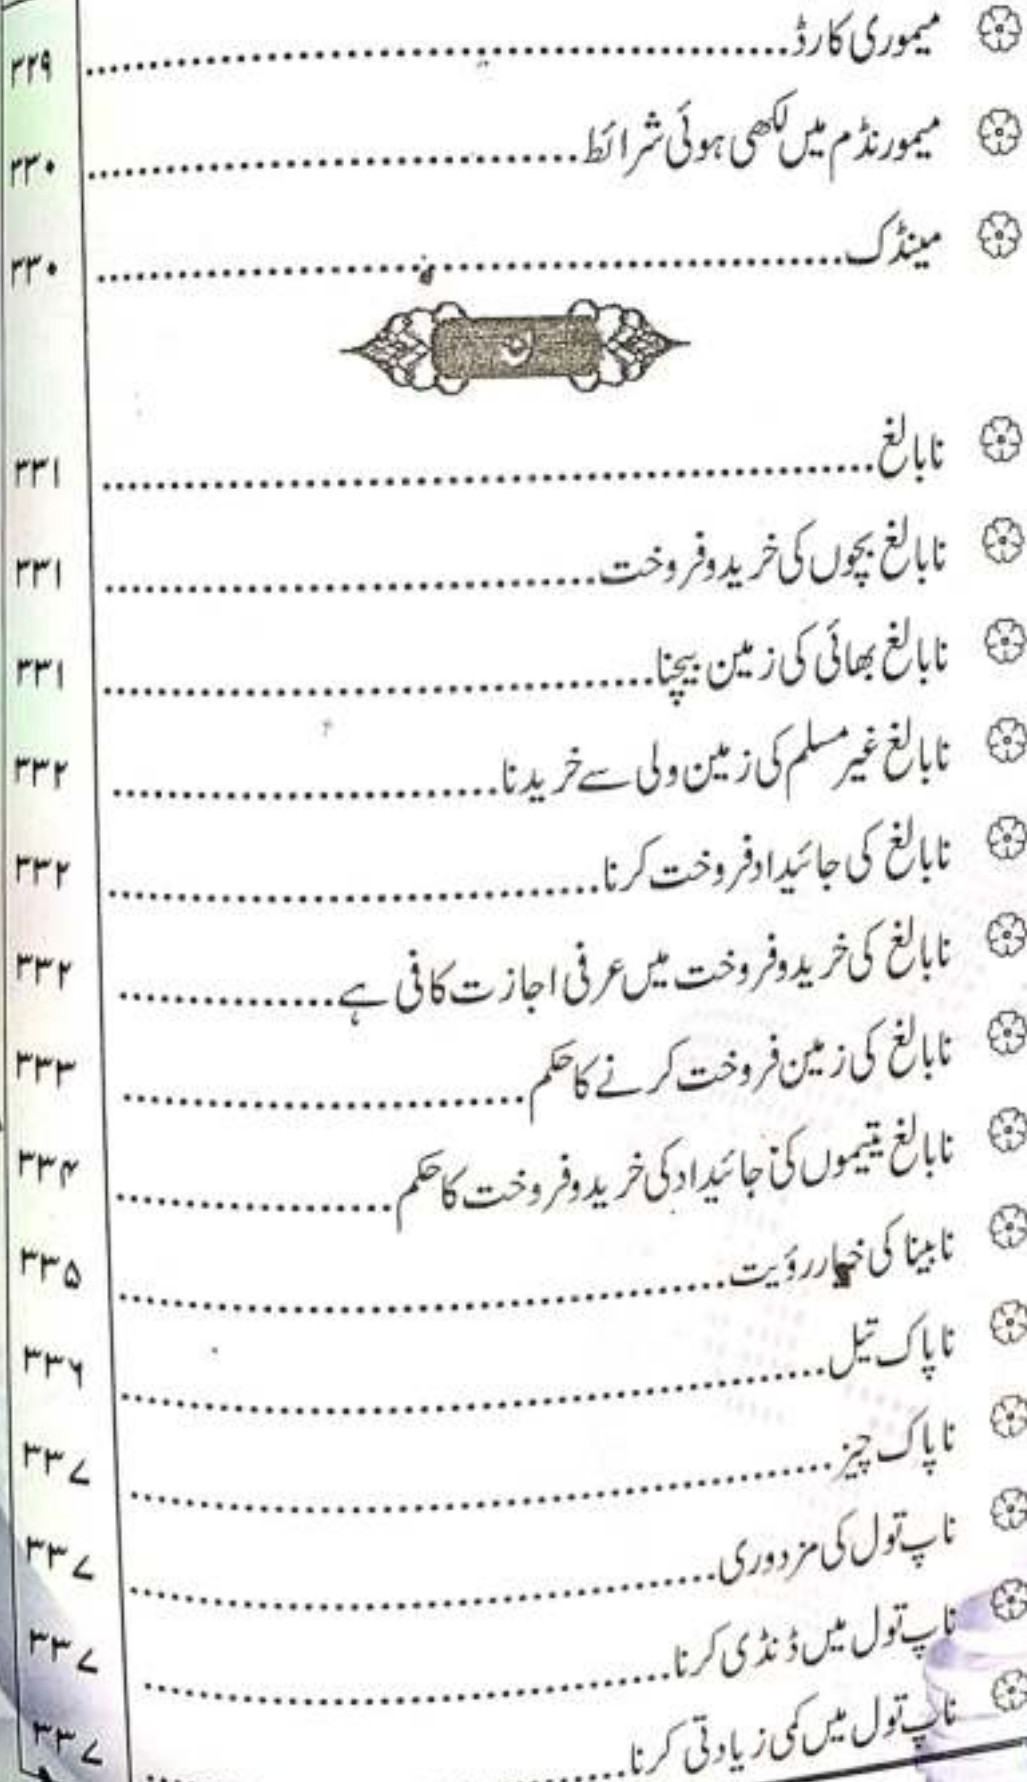 میموری کارڈ ۳۲۹
میمورنڈم میں لکھی ہوئی شرائط ۳۳۰
مینڈک ۳۳۰
ن
نابالغ ۳۳۱
نابالغ بچوں کی خریدوفروخت ۳۳۱
نابالغ بھائی کی زمین بیچنا ۳۳۱
نابالغ غیر مسلم کی زمین ولی سے خریدنا ۳۳۲
نابالغ کی جائیداد فروخت کرنا ۳۳۲
نابالغ کی خریدوفروخت میں عرفی اجازت کافی ہے ۳۳۲
نابالغ کی زمین فروخت کرنے کا حکم ۳۳۳
نابالغ یتیموں کی جائیداد کی خریدوفروخت کا حکم ۳۳۴
نابینا کی خیار رؤیت ۳۳۵
ناپاک تیل ۳۳۶
ناپاک چیز ۳۳۷
ناپ تول کی مزدوری ۳۳۷
ناپ تول میں ڈنڈی کرنا ۳۳۷
ناپ تول میں کمی زیادتی کرنا ۳۳۷